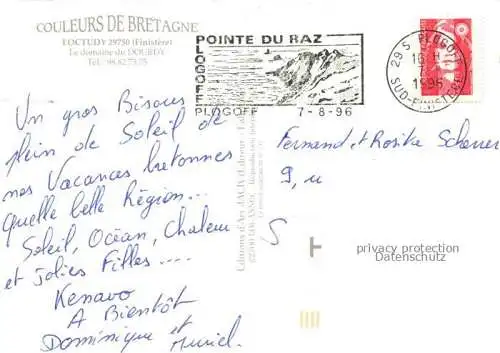 COULEURS DE BRETAGNE
LOCTUDY 29750 (Finistère)
Le domaine du DOURDY
POINTE DU RAZ
PLOGOFF
PLOGOFF 7-8-96
29 S PLOGOFF
16 H
1996
SUD-FINISTERE
Un gros Bisous
plein de Soleil de
nos Vacances bretonnes
quelle belle Région...
Soleil, Océan, Chaleur
et Jolies Filles.....
Kenavo
A Bientôt
Dominique et
Muriel.
Fernand et Rosika Scherrer
9, u
S
privacy protection
Datenschutz